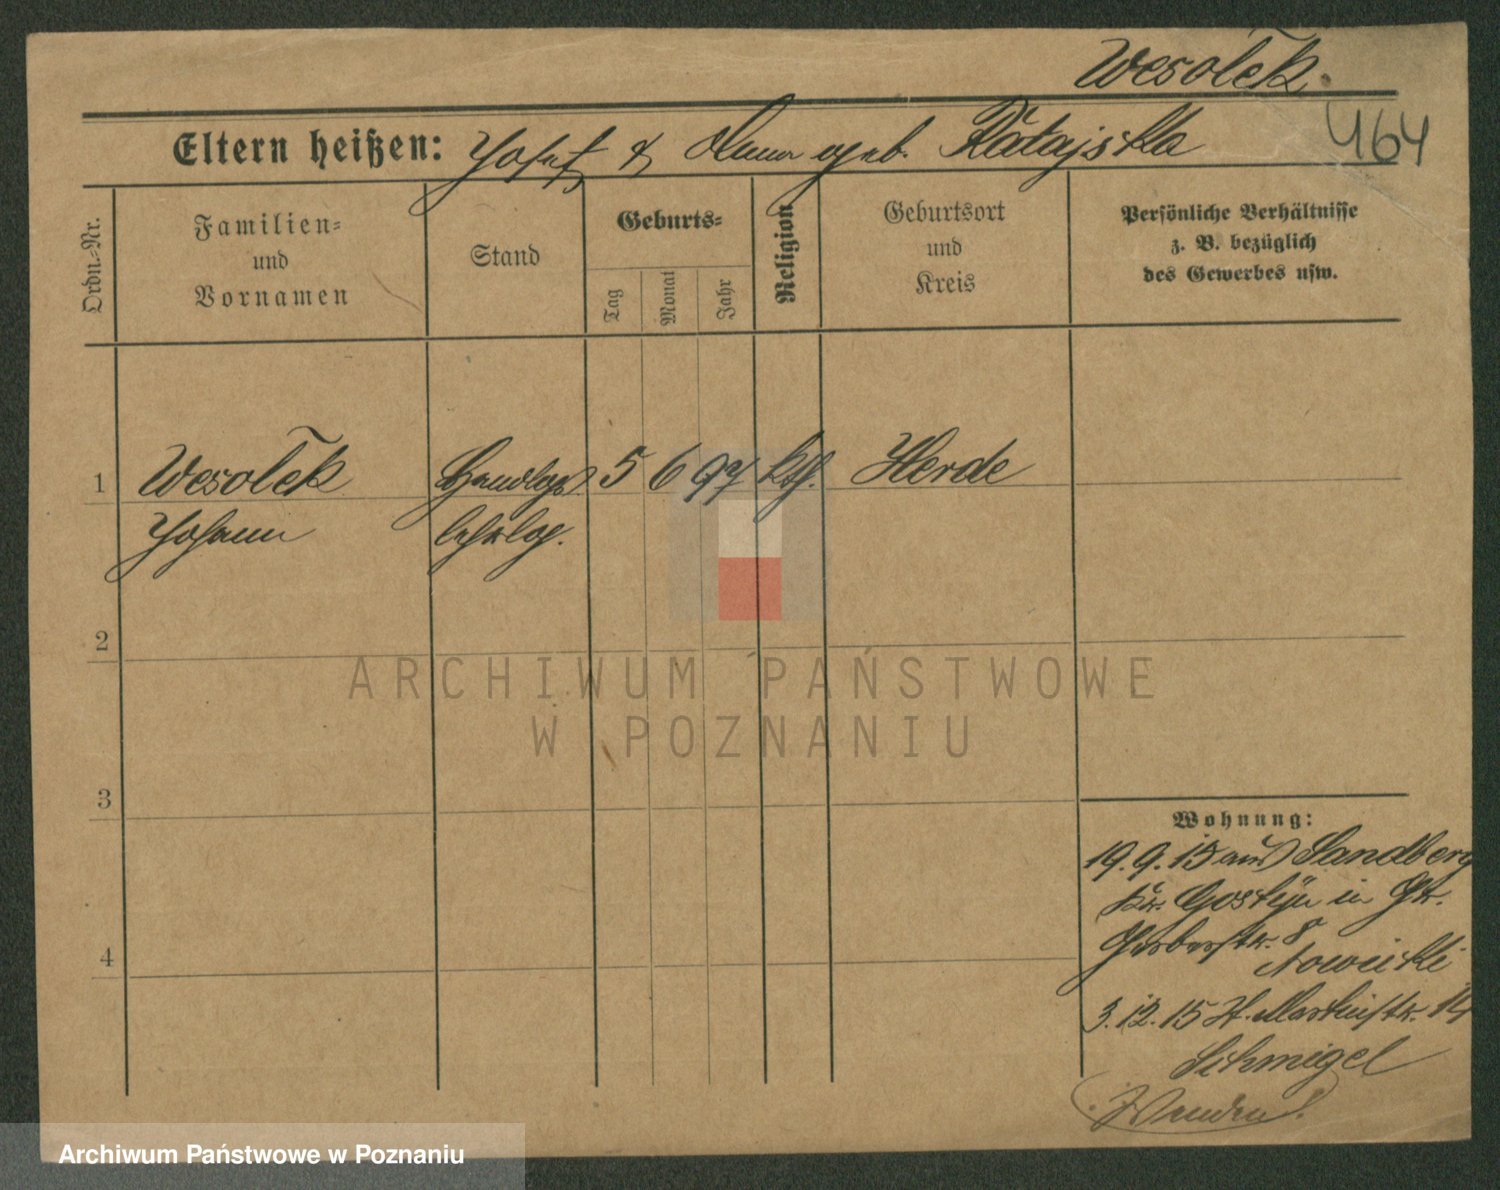 Wesołek.
464
Eltern heißen: Josef & Anna geb. Ratajska
Ordn.-Nr.
Familien-
und
Vornamen
Stand
Geburts-
Tag
Monat
Jahr
Religion
Geburtsort
und
Kreis
Persönliche Verhältnisse
z. B. bezüglich
des Gewerbes usw.
1 Wesołek Handlgs. 5 6 97 kth. Herde
Johann lehrlg.
2
ARCHIWUM PAŃSTWOWE
W POZNANIU
3
4
Wohnung:
19.9.15 aus Sandberg
Kr. Gostyn in Gr.
Gerberstr. 8
Nowicki
3.12.15 St. Martinstr. 14
Schmigel
Archiwum Państwowe w Poznaniu